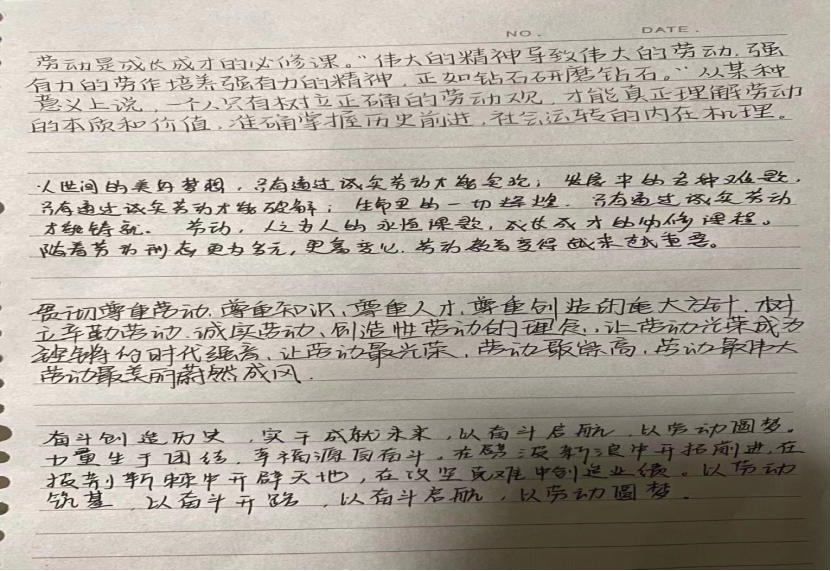 NO. DATE.
劳动是成长成才的必修课。"伟大的精神导致伟大的劳动,强
有力的劳作培养强有力的精神,正如钻石研磨钻石。"从某种
意义上说,一个人只有树立正确的劳动观,才能真正理解劳动
的本质和价值,准确掌握历史前进,社会运转的内在机理。
人世间的美好梦想,只有通过诚实劳动才能实现;发展中的各种难题,
只有通过诚实劳动才能破解;生命里的一切辉煌,只有通过诚实劳动
才能铸就。劳动,人之为人的永恒课题,成长成才的必修课程。
随着劳动形态更为多元,更富变化,劳动教育变得越来越重要。
贯彻尊重劳动、尊重知识、尊重人才,尊重创造的重大方针,树
立辛勤劳动、诚实劳动、创造性劳动的理念,让劳动光荣成为
铿锵的时代强音,让劳动最光荣,劳动最崇高,劳动最伟大
劳动最美丽蔚然成风.
奋斗创造历史,实干成就未来,以奋斗启航,以劳动圆梦。
力量生于团结,幸福源自奋斗,在劈波斩浪中开拓前进,在
披荆斩棘中开辟天地,在攻坚克难中创造业绩。以劳动
筑基,以奋斗开路,以奋斗启航,以劳动圆梦.